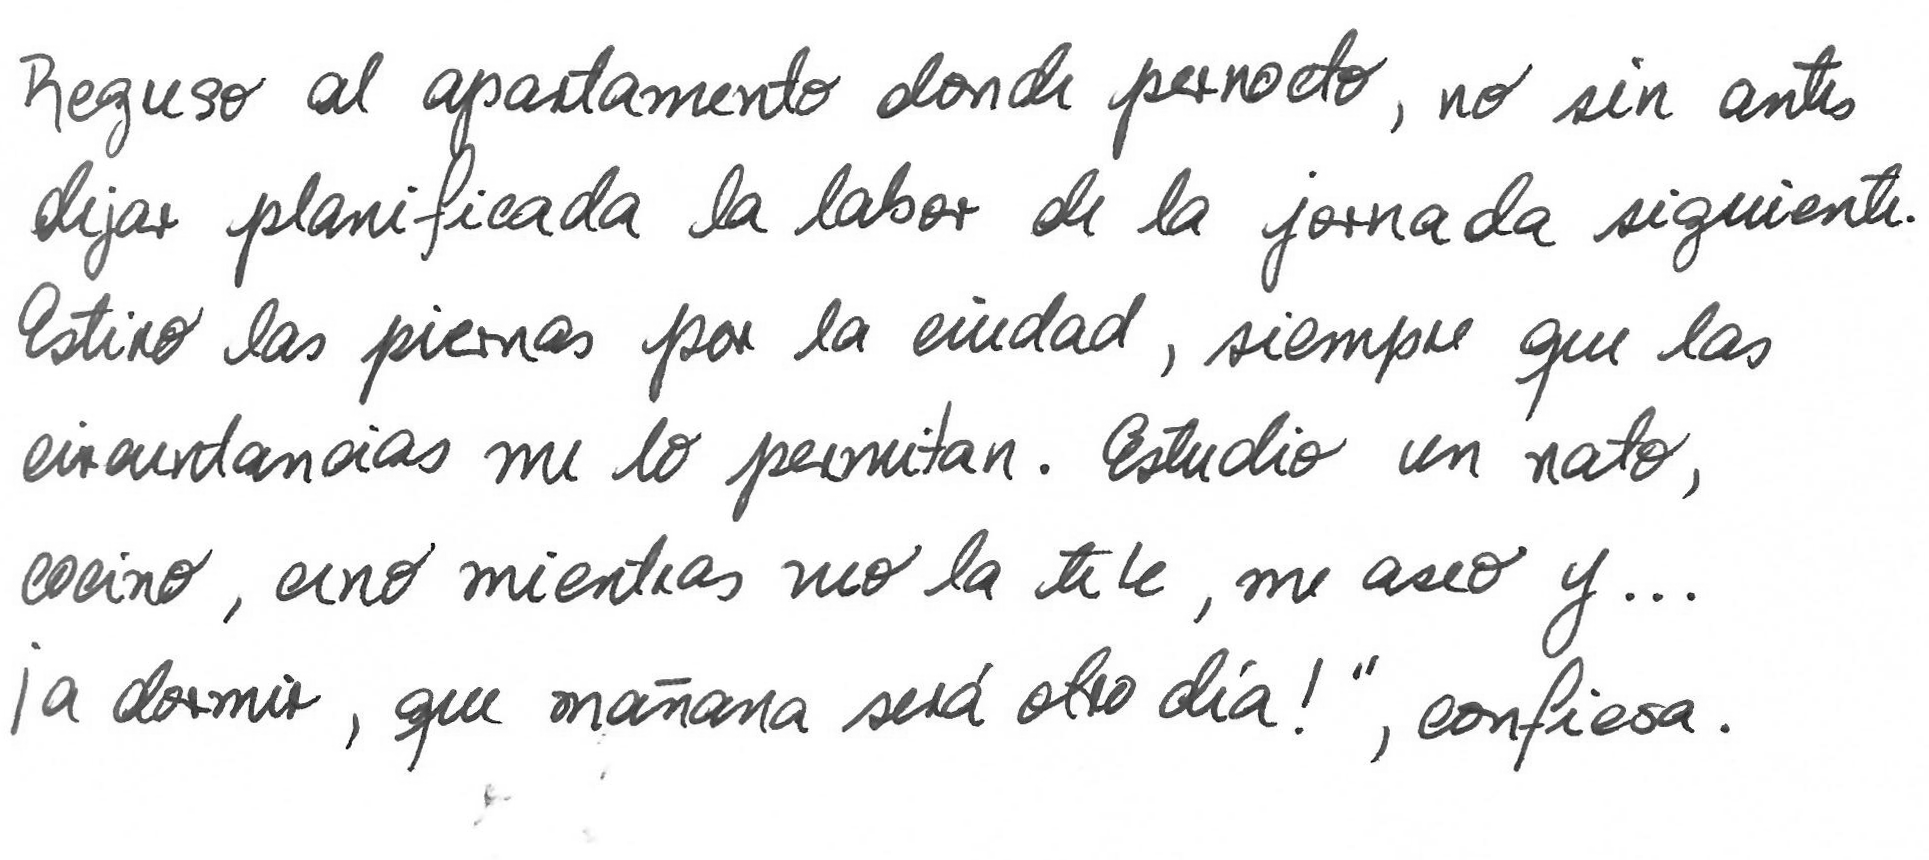 Regreso al apartamento donde pernocto, no sin antes
dejar planificada la labor de la jornada siguiente.
Estiro las piernas por la ciudad, siempre que las
circunstancias me lo permitan. Estudio un rato,
cocino, ceno mientras veo la tele, me aseo y...
¡a dormir, que mañana será otro día!", confiesa.